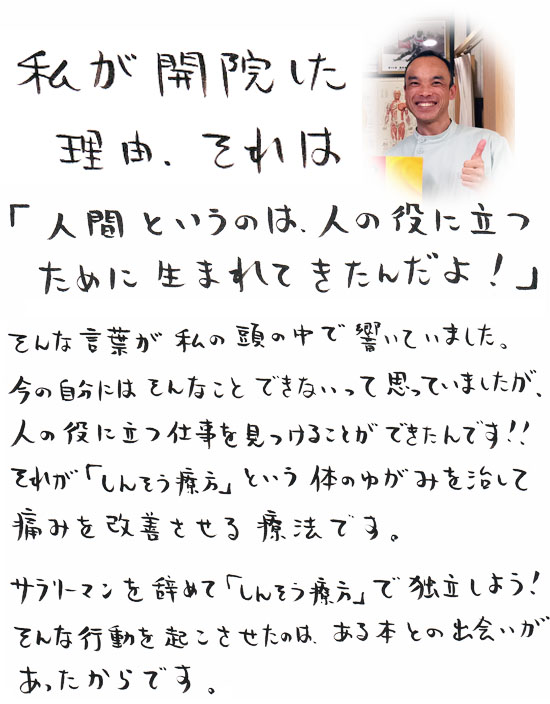 私が開院した
理由、それは
「人間というのは、人の役に立つ
ために生まれてきたんだよ！」
そんな言葉が私の頭の中で響いていました。
今の自分にはそんなことできないって思っていましたが、
人の役に立つ仕事を見つけることができたんです!!
それが「しんそう療方」という体のゆがみを治して
痛みを改善させる療法です。
サラリーマンを辞めて「しんそう療方」で独立しよう！
そんな行動を起こさせたのは、ある本との出会いが
あったからです。